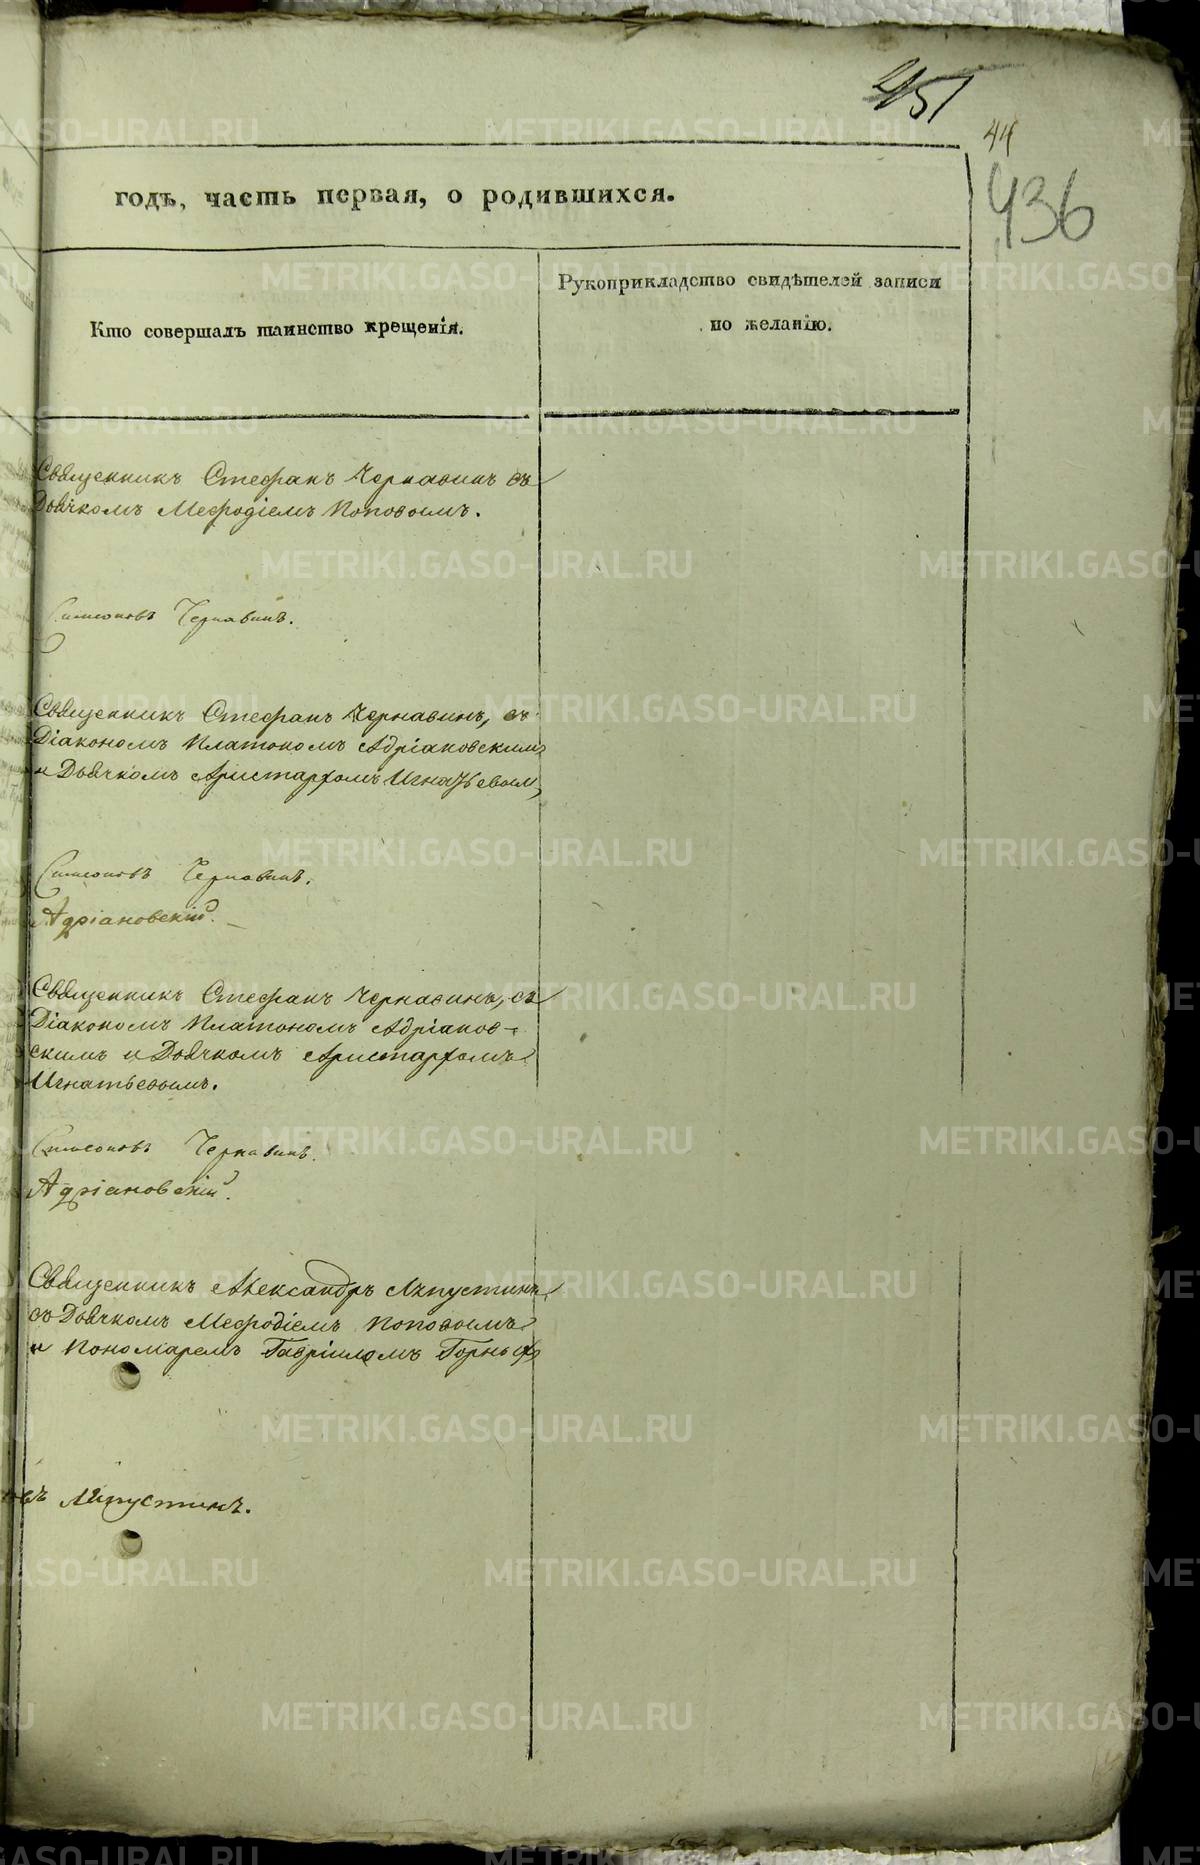 451
44
436
годъ, часть первая, о родившихся.
Кто совершалъ таинство крещенія.
Рукоприкладство свидѣтелей записи
по желанію.
Священникъ Стефанъ Чернавинъ съ
Дьячкомъ Мефодіемъ Поповымъ.
Чернавинъ.
Священникъ Стефанъ Чернавинъ, съ
Діакономъ Платономъ Адріановскимъ
и Дьячкомъ Аристархомъ Игнатьевым,
Чернавинъ.
Адріановскій.
Священникъ Стефанъ Чернавинъ, съ
Діакономъ Платономъ Адріанов-
скимъ и Дьячкомъ Аристархомъ
Игнатьевымъ.
Чернавинъ.
Адріановскій.
Священникъ Александръ Ляпустинъ
съ Дьячкомъ Мефодіемъ Поповымъ
и Пономаремъ Гавріиломъ Горныхъ
Ляпустинъ.
METRIKI.GASO-URAL.RU